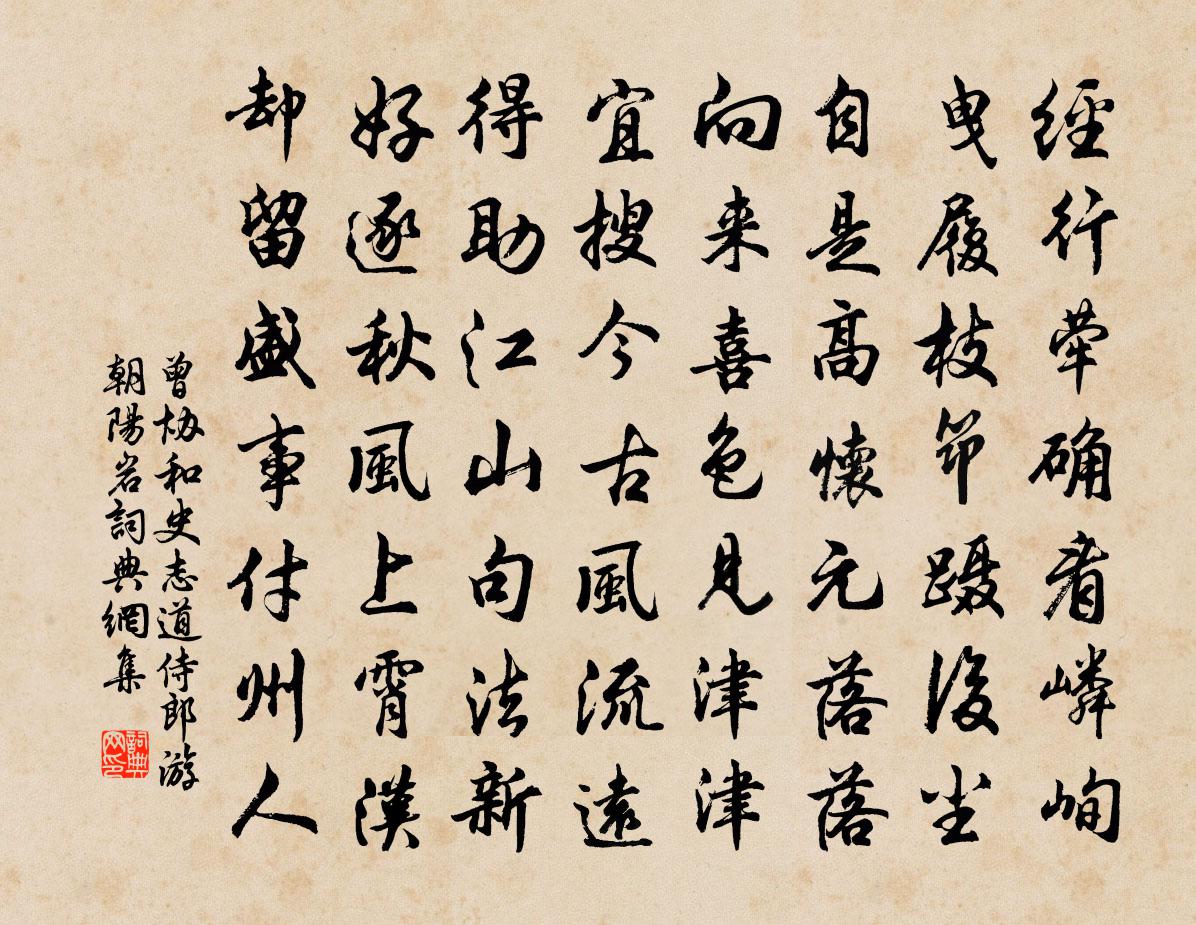 經行犖确看嶙峋
曳履枝筇躡後尘
自是高懷元落落
向来喜色見津津
宜搜今古風流遠
得助江山句法新
好逐秋風上霄漢
却留盛事付州人
曾協和史志道侍郎游
朝陽岩詞典網集
詞典网印